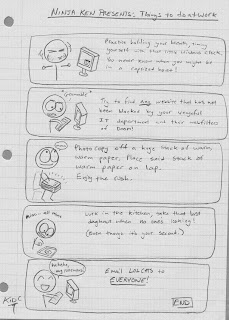 NINJA KEN PRESENTS: Things to do at work
Practice holding your breath, timing
yourself with that little windows clock.
You never know when you might be
in a capsized boat!
*grumble*
Try to find any website that has not
been blocked by your vengeful
IT department and their webfilters
of Doom!
Photocopy off a huge stack of warm,
warm paper. Place said stack of
warm paper on lap.
Enjoy the rush.
Mine... all mine
Lurk in the kitchen, take that last
doughnut when no ones looking!
(Even though it's your second.)
hehehe,
Email LOLCATS to
EVERYONE!
END